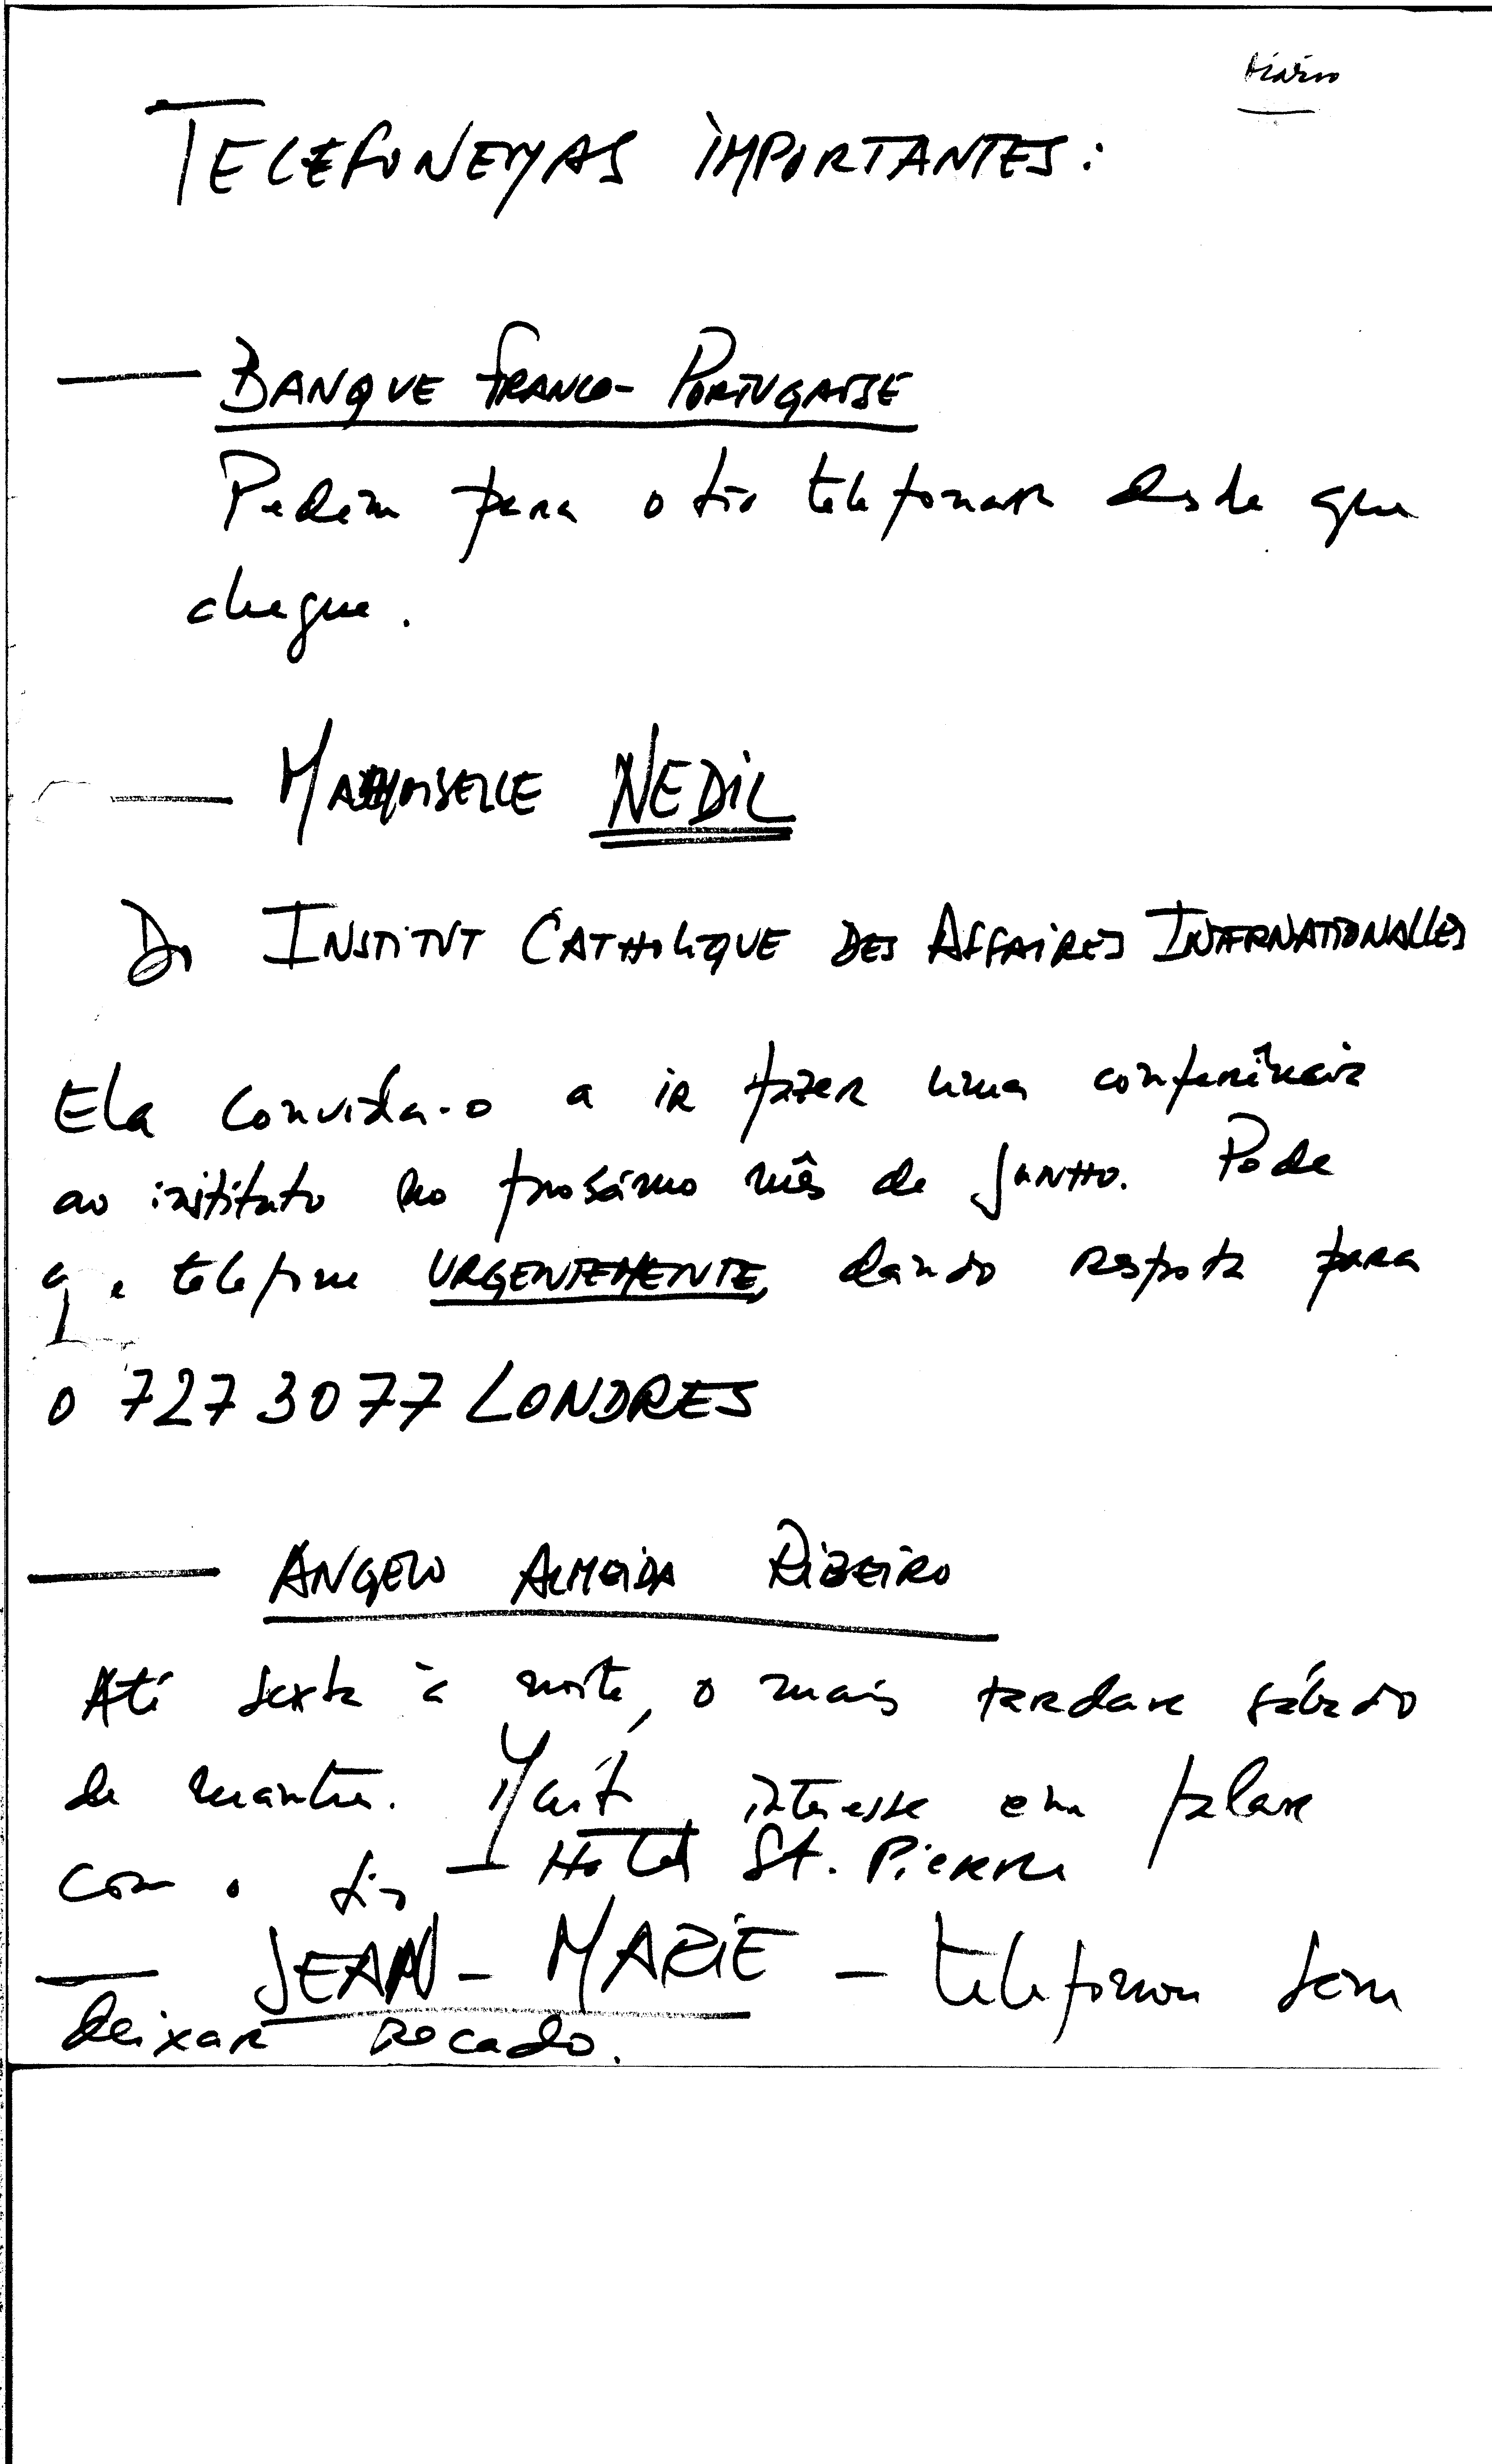 Diário
TELEFONEMAS IMPORTANTES:
— BANQUE FRANCO-PORTUGAISE
Pedem para o tio telefonar desde que
chegue.
— MADEMOISELLE NEDIL
Do INSTITUT CATHOLIQUE DES AFFAIRES INTERNATIONALLES
Ela convida-o a ir fazer uma conferência
ao instituto no próximo mês de JUNHO. Pede
q. telefone URGENTEMENTE, dando resposta para
o 727 30 77 LONDRES
— ANGELO ALMEIDA RIBEIRO
Até sexta à noite, o mais tardar sábado
de manhã. Muito interesse em falar
com o tio — Hotel St. Pierre
— JEAN-MARIE — telefonou sem
deixar recado.